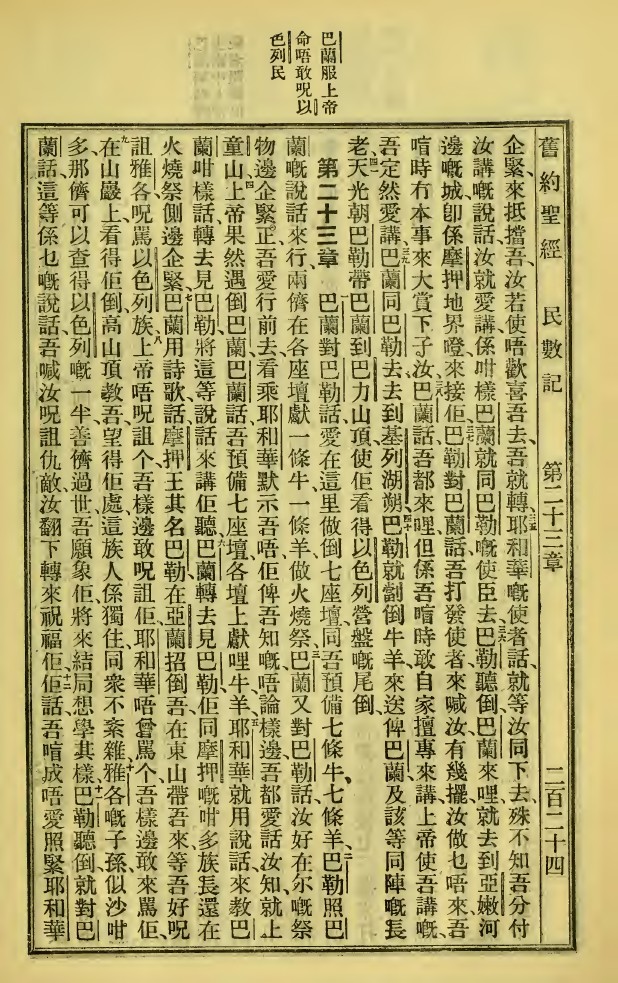 巴蘭服上帝
命唔敢呪以
色列民
舊約聖經 民數記 第二十三章 二百二十四
企緊、來抵擋吾、汝若使唔歡喜吾去、吾就轉、三五耶和華嘅使者話、就等汝同下去、殊不知吾分付
汝講嘅說話、汝就愛講、係咁樣巴蘭就同巴勒嘅使臣去、三六巴勒聽倒巴蘭來哩、就去到亞嫩河
邊嘅城、卽係摩押地界嶝、來接佢、三七巴勒對巴蘭話、吾打發使者來喊汝有幾擺、汝做乜唔來、吾
喑時冇本事來大賞下子汝、三八巴蘭話、吾都來哩、但係吾喑時敢自家擅專來講、上帝使吾講嘅、
吾定然愛講、三九巴蘭同巴勒去、去到基列湖朔、四十巴勒就劏倒牛羊、來送俾巴蘭、及該等同陣嘅長
老、四一天光朝、巴勒帶巴蘭到巴力山頂、使佢看得以色列營盤嘅尾倒、
第二十三章 一巴蘭對巴勒話、愛在這里做倒七座壇、同吾預備七條牛、七條羊、二巴勒照巴
蘭嘅說話來行、兩儕在各座壇獻一條牛一條羊、做火燒祭、三巴蘭又對巴勒話、汝好在尔嘅祭
物邊企緊、正吾愛行前去、看乘耶和華默示吾唔、佢俾吾知嘅、唔論樣邊、吾都愛話汝知、就上
童山、四上帝果然遇倒巴蘭、巴蘭話、吾預備七座壇、各壇上獻哩牛羊、五耶和華就用說話來教巴
蘭、咁樣話、轉去見巴勒、將這等說話來講佢聽、六巴蘭轉去見巴勒、佢同摩押嘅咁多族長、還在
火燒祭側邊企緊、七巴蘭用詩歌話、摩押王其名巴勒、在亞蘭招倒吾、在東山帶吾來、等吾好呪
詛雅各、呪罵以色列族、八上帝唔呪詛个、吾樣邊敢呪詛佢、耶和華唔曾罵个、吾樣邊敢來罵佢、
九在山巖上看得佢倒、高山頂教吾望得佢處、這族人係獨住、同衆不紊雜、十雅各嘅子孫似沙咁
多、那儕可以查得以色列嘅一半、善儕過世、吾願象佢、將來結局、想學其樣、十一巴勒聽倒、就對巴
蘭話、這等係乜嘅說話、吾喊汝呪詛仇敵、汝翻下轉來祝福佢、十二佢話、吾喑成唔愛照緊耶和華